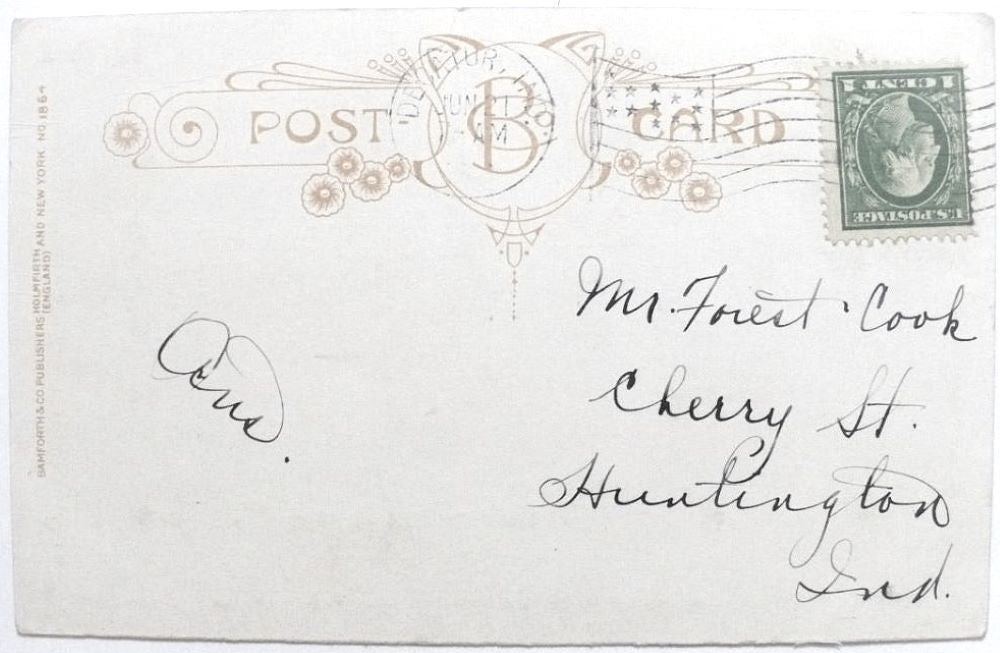 POST CARD
DECATUR, IND.
JUN 21
AM
B
1 CENT 1
U.S. POSTAGE
Mr. Forest Cook
Cherry St.
Huntington
Ind.
BAMFORTH & CO. PUBLISHERS HOLMFIRTH AND NEW YORK. NO. 1864
(ENGLAND)